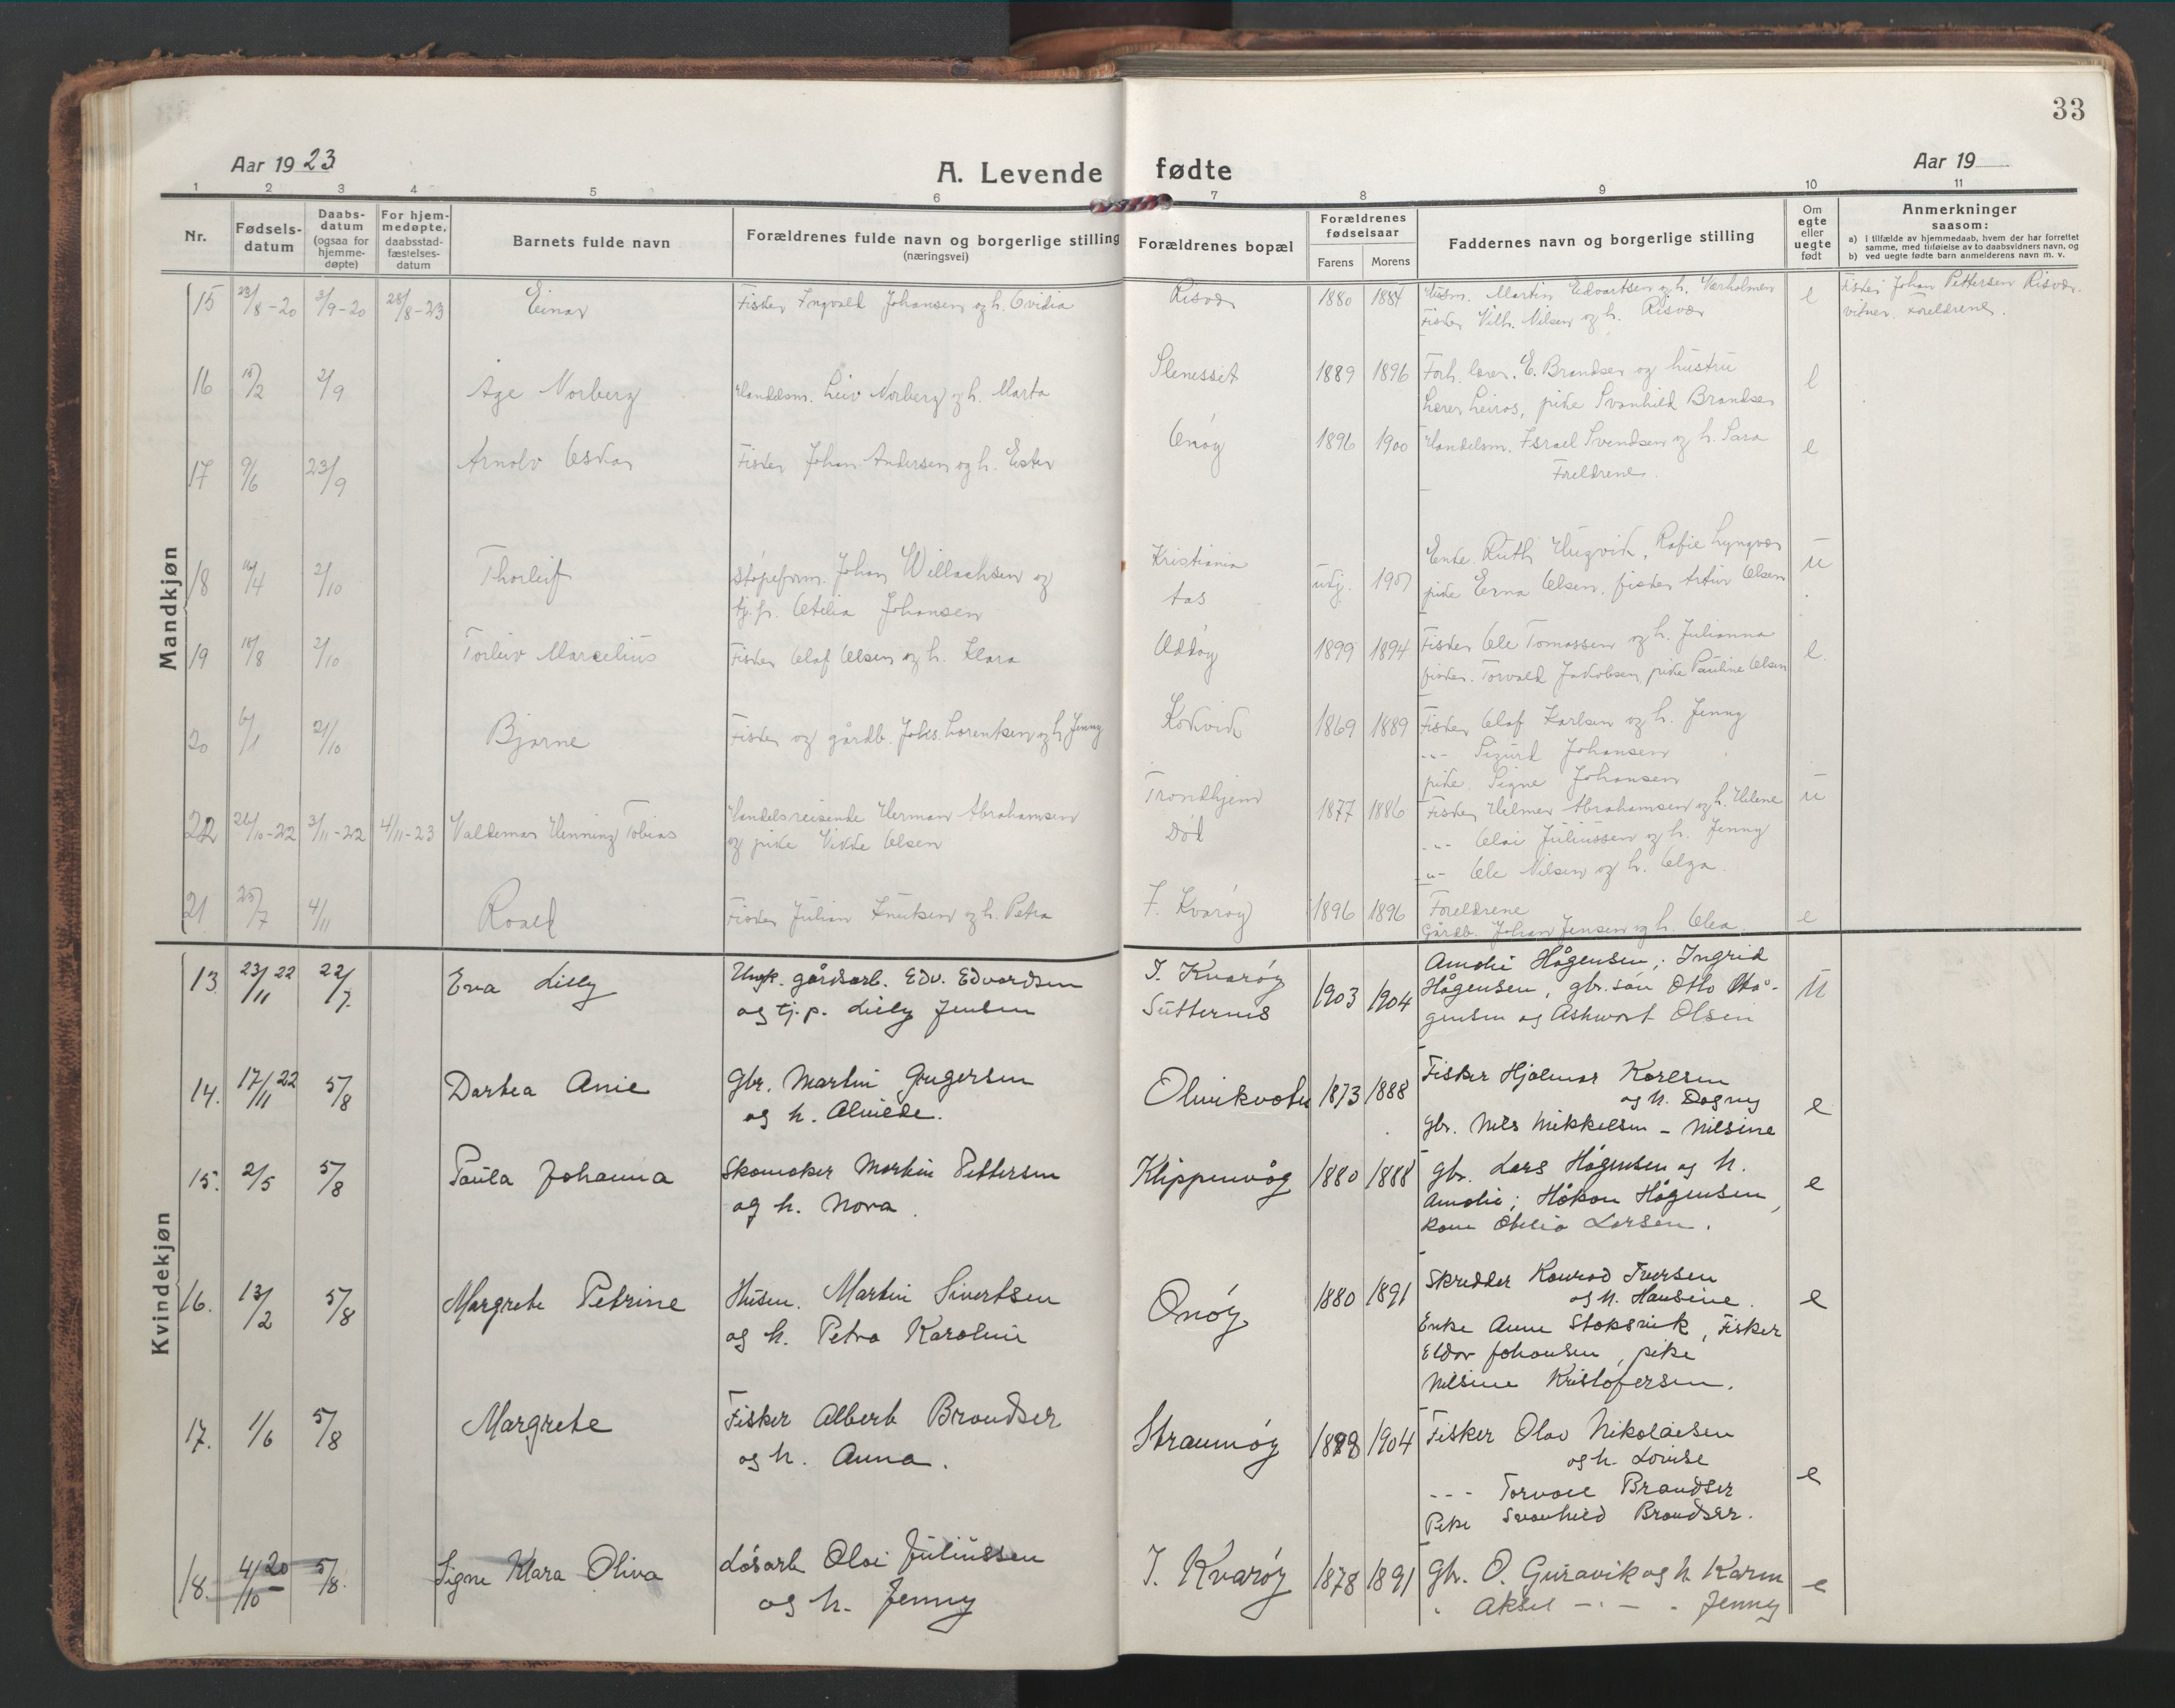 33
Aar 1923
A. Levende fødte
Aar 19
1 2 3 4 5 6 7 8 9 10 11
Nr.
Fødsels-
datum
Daabs-
datum
(ogsaa for
hjemme-
døpte)
For hjem-
medøpte,
daabsstad-
fæstelses-
datum
Barnets fulde navn
Forældrenes fulde navn og borgerlige stilling
(næringsvei)
Forældrenes bopæl
Forældrenes
fødselsaar
Farens Morens
Faddernes navn og borgerlige stilling
Om
egte
eller
uegte
født
Anmerkninger
saasom:
a) i tilfælde av hjemmedaab, hvem der har forrettet
samme, med tilføielse av to daabsvidners navn, og
b) ved uegte fødte barn anmelderens navn m. v.
Mandkjøn
15 23/8-20 3/9-20 28/8-23 Einar Fisker Ingvald Johansen og h. Ovidia Risvær 1880 1884 Martin Edvartsen og h. Varholmen e Fisker Johan Pettersen Risvær.
Fisker Vilh. Nilsen og h. Risvær vitner. Foreldrene.
16 15/2 2/9 Age Norberg Handelsm. Leiv Norberg og h. Marta Slenesset 1889 1896 Forh. lærer. E. Brandser og hustru e
Lærer Leiros, pike Svanhild Brandser
17 9/6 23/9 Arnolv Oskar Fisker Johan Andersen og h. Ester Onøy 1896 1900 Handelsm. Israel Svendsen og h. Sara e
Foreldrene.
18 /4 2/10 Thorleif Støpeform. Johan Willachsen og Kristiania udj. 1901 Enke. Ruth Hugvik, Rafie Lyngvær u
tj.p. Otelia Johansen pike Erna Olsen, fisker Artur Olsen
19 18/8 2/10 Torleiv Marselius Fisker Olaf Olsen og h. Klara Aldøy 1899 1894 Fisker Ole Tomassen og h. Julianna e.
fisker. Torvald Jakobsen, pike Pauline Olsen
20 6/1 21/10 Bjarne Fisker og gårdb. Johs. Lorentsen og h. Jenny Kodvik 1869 1889 Fisker Olaf Karlsen og h. Jenny
-"- Sigurd Johansen
pike. Signe Johansen
22 26/10-22 3/11-22 4/11-23 Valdemar Henning Tobias Handelsreisende Herman Abrahamsen Trondhjem 1877 1886 Fisker Helmer Abrahamsen og h. Helene u
og pike Vikke Olsen Død -"- Olai Juliussen og h. Jenny
-"- Ole Nilsen og h. Olga.
21 25/7 4/11 Roald Fisker Julian Knutsen og h. Petra I. Kvarøy 1896 1896 Foreldrene e
Gårdb. Johan Jensen og h. Olea.
Kvindekjøn
13. 23/11 22 22/7. Eva Lilly Ungk. gårdsarb. Edv. Edvardsen I. Kvarøy 1903 1904 Amalie Hågensen; Ingrid u
og tj.p. Lilly Jensen Sutternes Hågensen, gbr. søn Otto Hå-
gensen og Ashwart Olsen
14. 17/11 22 5/8 Dortea Anie Gbr. Martin Gregersen Olvikvatn 1873 1888 Fisker Hjalmar Karlsen e
og h. Almede. og h. Dagny
gbr. Nils Mikkelsen - Nilsine
15. 2/5 5/8 Paula Johanna Skomaker Martin Pettersen Klippenvåg 1880 1888 gbr. Lars Hågensen og h. e
og h. Nora. Amalie; Håkon Hågensen,
kone Otelia Larsen.
16. 13/2 5/8 Margrete Petrine Husm. Martin Sivertsen Onøy 1880 1891 Skredder Konrad Iversen e
og h. Petra Karoline og h. Hansine.
Enke Anne Stoksvik, Fisker
Eldor Johansen, pike
Nilsine Kristofersen.
17. 1/6 5/8 Margrete Fisker Albert Brandser Straumøy 1898 1904 Fisker Olav Nikolaisen e
og h. Anna. og h. Lovise
--- Torvald Brandser
Pike Svanhild Brandser.
18. 4/10 20 5/8. Signe Klara Oliva Løsarb Olai Juliussen I. Kvarøy 1878 1891 Gbr. O. Guravik og h. Karen e
og h. Jenny " Aksel - " - . Jenny